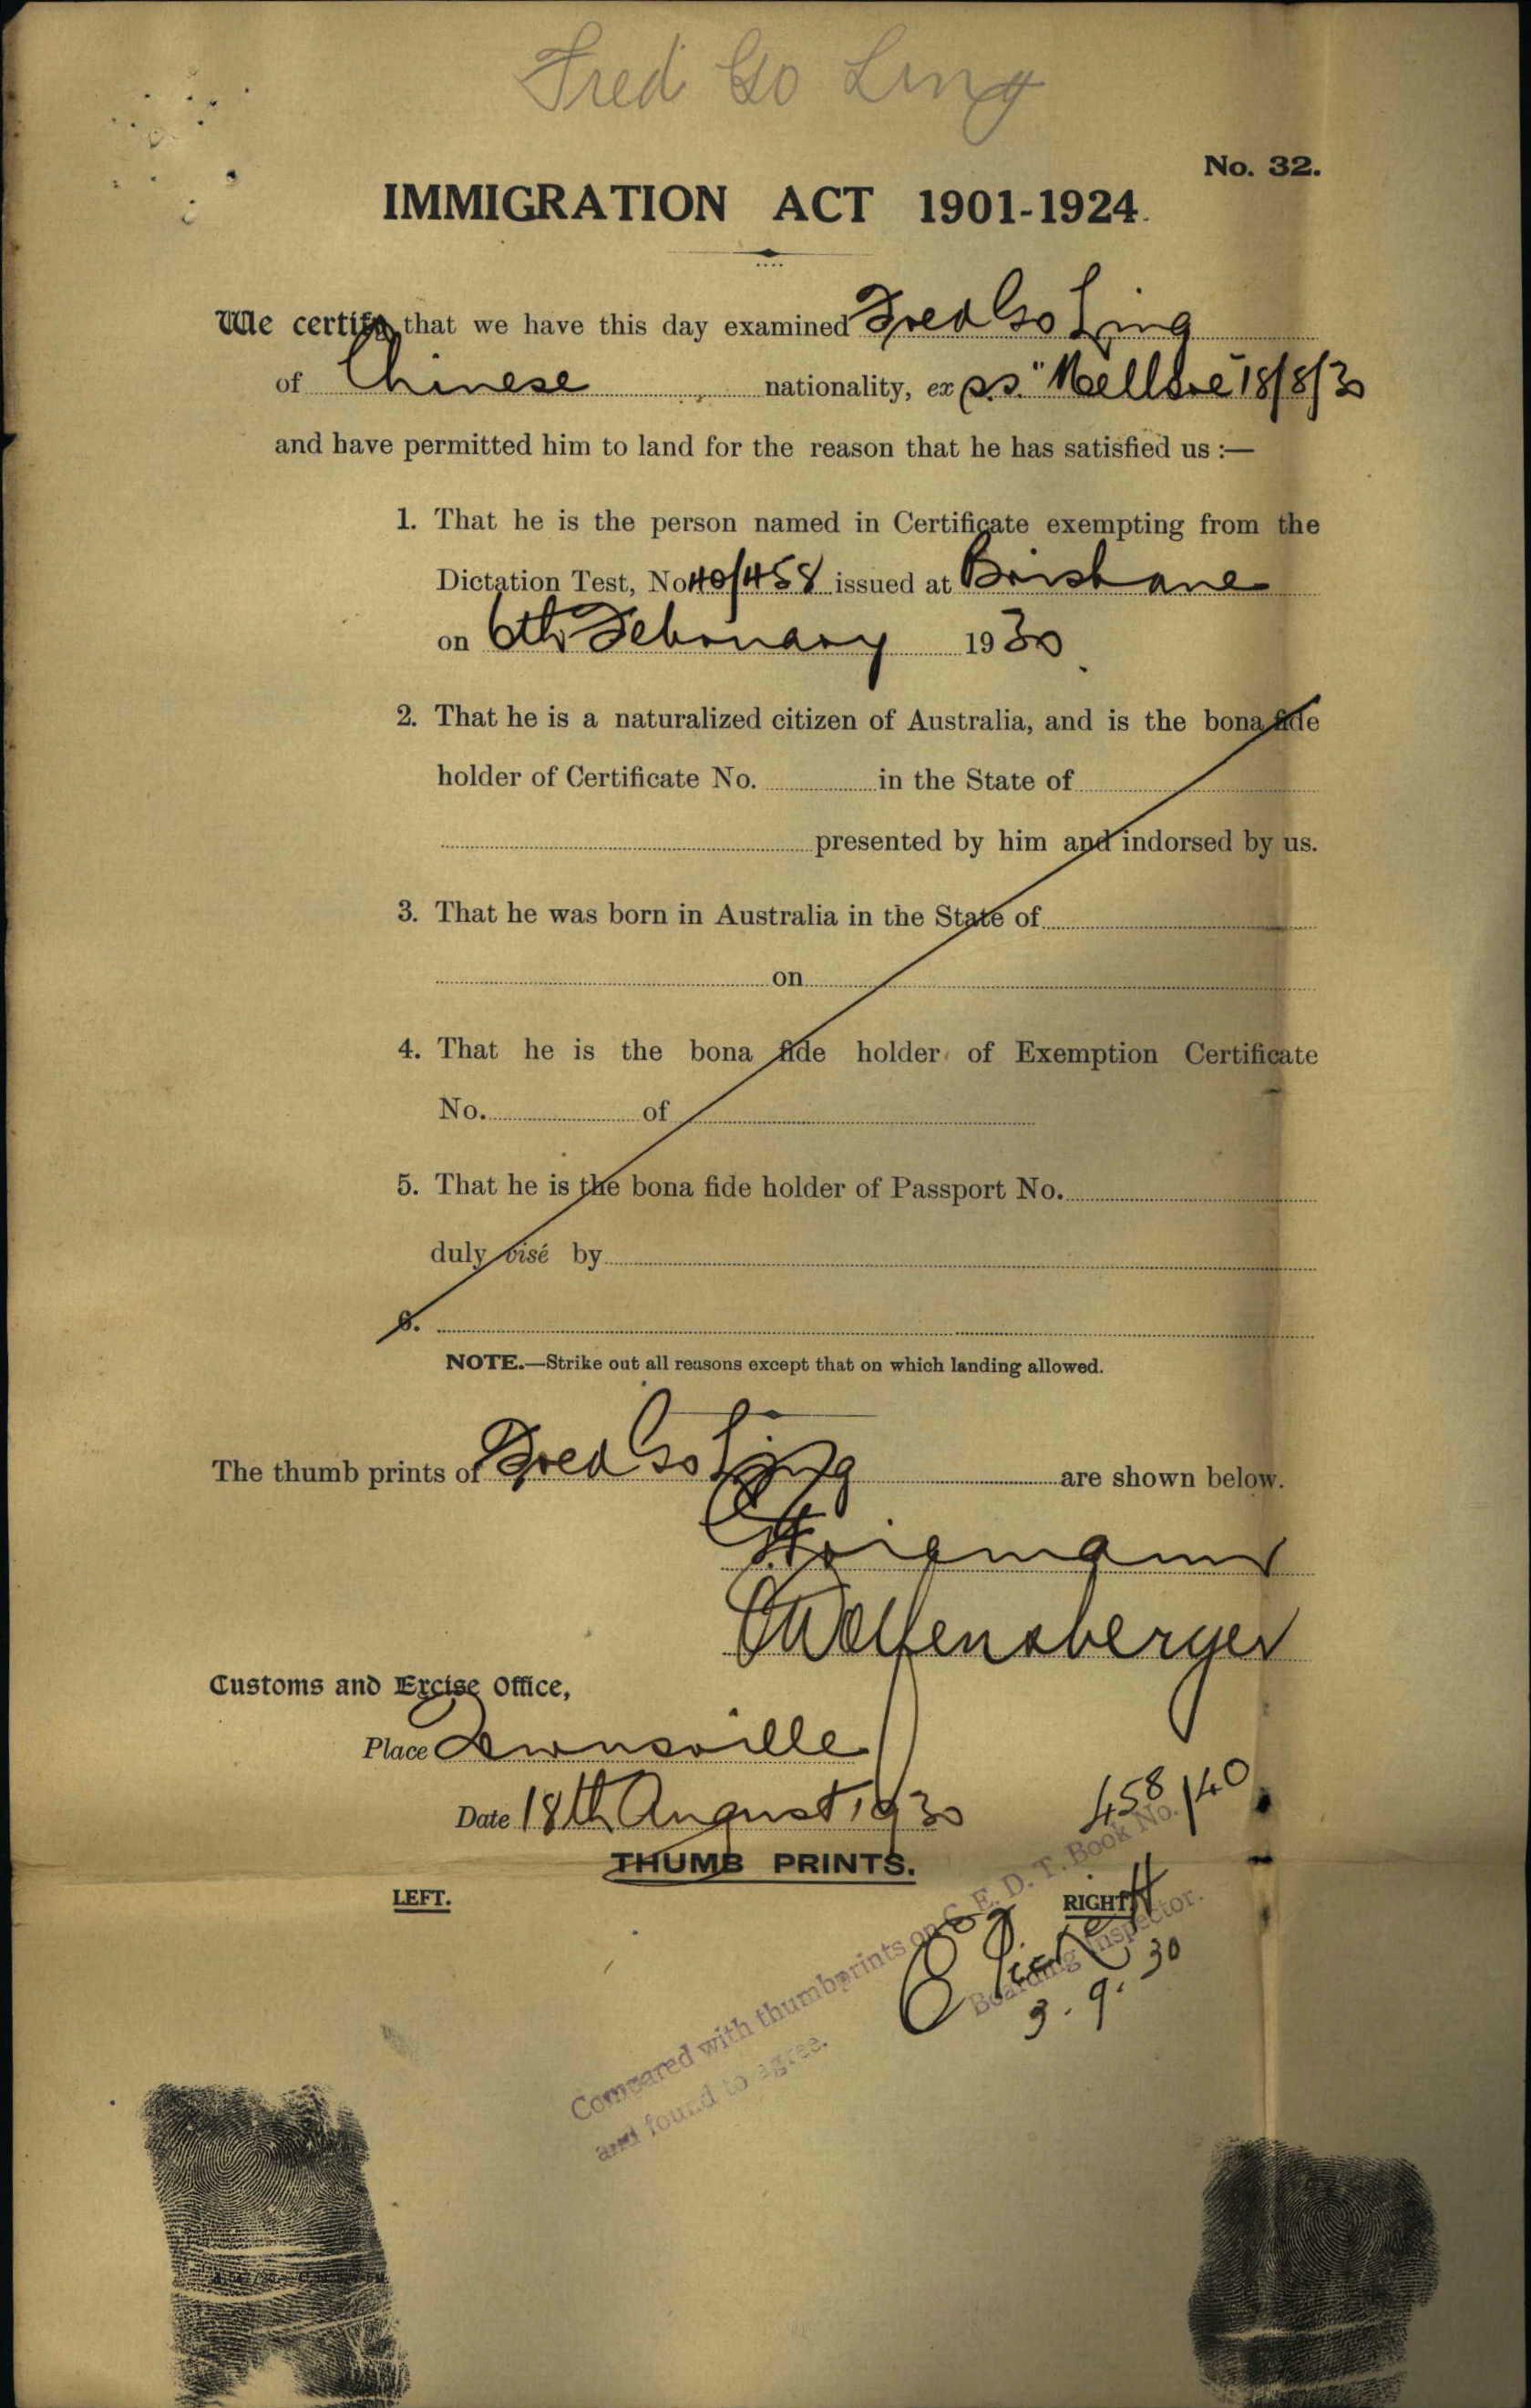 Fred Go Ling
No. 32.
IMMIGRATION ACT 1901-1924.
We certify that we have this day examined Fred Go Ling
of Chinese nationality, ex s.s. "Mellore" 18/8/30
and have permitted him to land for the reason that he has satisfied us :—
1. That he is the person named in Certificate exempting from the
Dictation Test, No 40/458 issued at Brisbane
on 6th February 1930
2. That he is a naturalized citizen of Australia, and is the bona fide
holder of Certificate No. in the State of
presented by him and indorsed by us.
3. That he was born in Australia in the State of
on
4. That he is the bona fide holder of Exemption Certificate
No. of
5. That he is the bona fide holder of Passport No.
duly visé by
6.
NOTE.—Strike out all reasons except that on which landing allowed.
The thumb prints of Fred Go Ling are shown below.
Wolfensberger
Customs and Excise Office,
Place Townsville
Date 18th August 1930
458/40
THUMB PRINTS.
LEFT. RIGHT
Compared with thumbprints on C. E. D. T. Book No.
and found to agree.
Boarding Inspector.
3.9.30